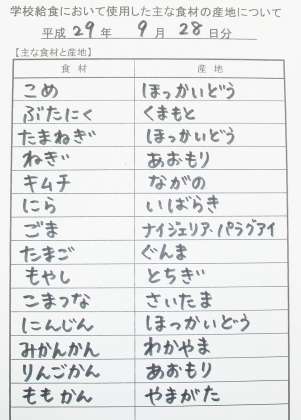 学校給食において使用した主な食材の産地について
平成 29 年 9 月 28 日分
【主な食材と産地】
食材 産地
こめ ほっかいどう
ぶたにく くまもと
たまねぎ ほっかいどう
ねぎ あおもり
キムチ ながの
にら いばらき
ごま ナイジェリア、パラグアイ
たまご ぐんま
もやし とちぎ
こまつな さいたま
にんじん ほっかいどう
みかんかん わかやま
りんごかん あおもり
ももかん やまがた